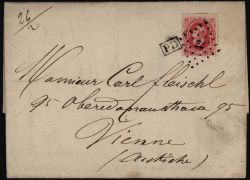 26/2
PD
Monsieur Carl Fleischl
95 Oberedonaustrasse 95
Vienne
(Autriche)